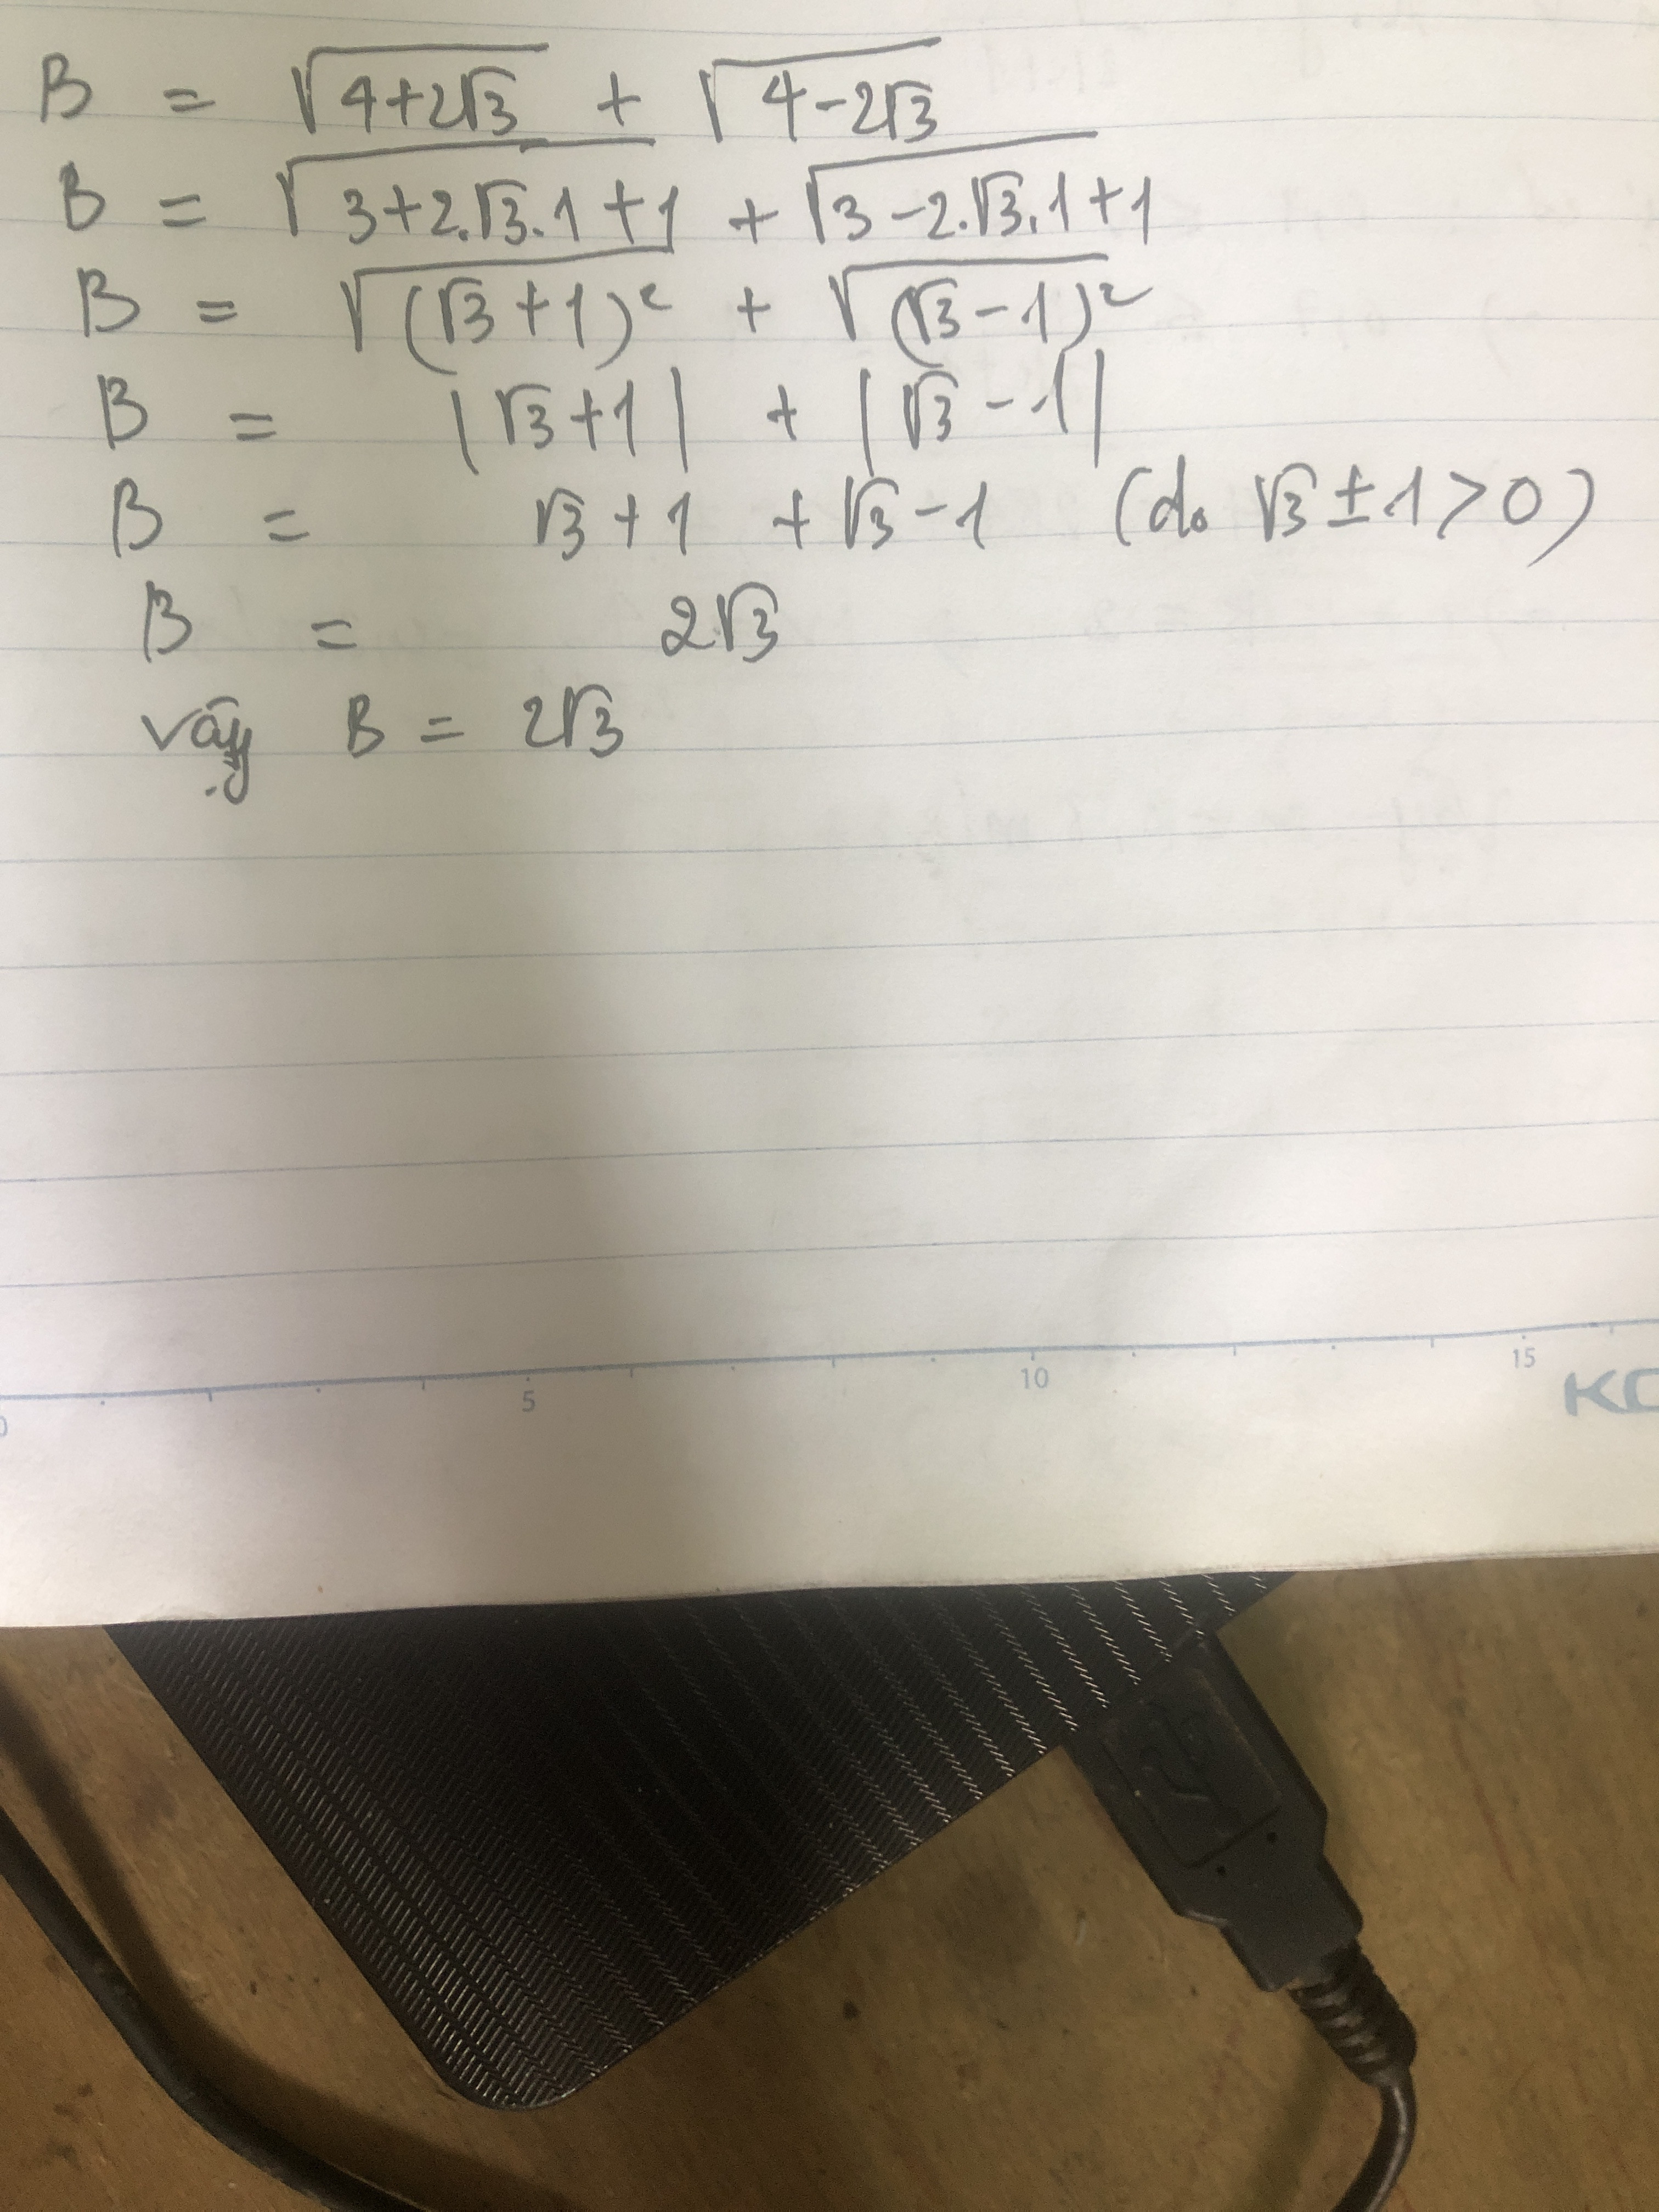 B = √(4+2√3) + √(4-2√3)
B = √(3+2.√3.1+1) + √(3-2.√3.1+1)
B = √((√3+1)²) + √((√3-1)²)
B = |√3+1| + |√3-1|
B = √3+1 + √3-1 (do √3±1>0)
B = 2√3
vậy B = 2√3
0 5 10 15